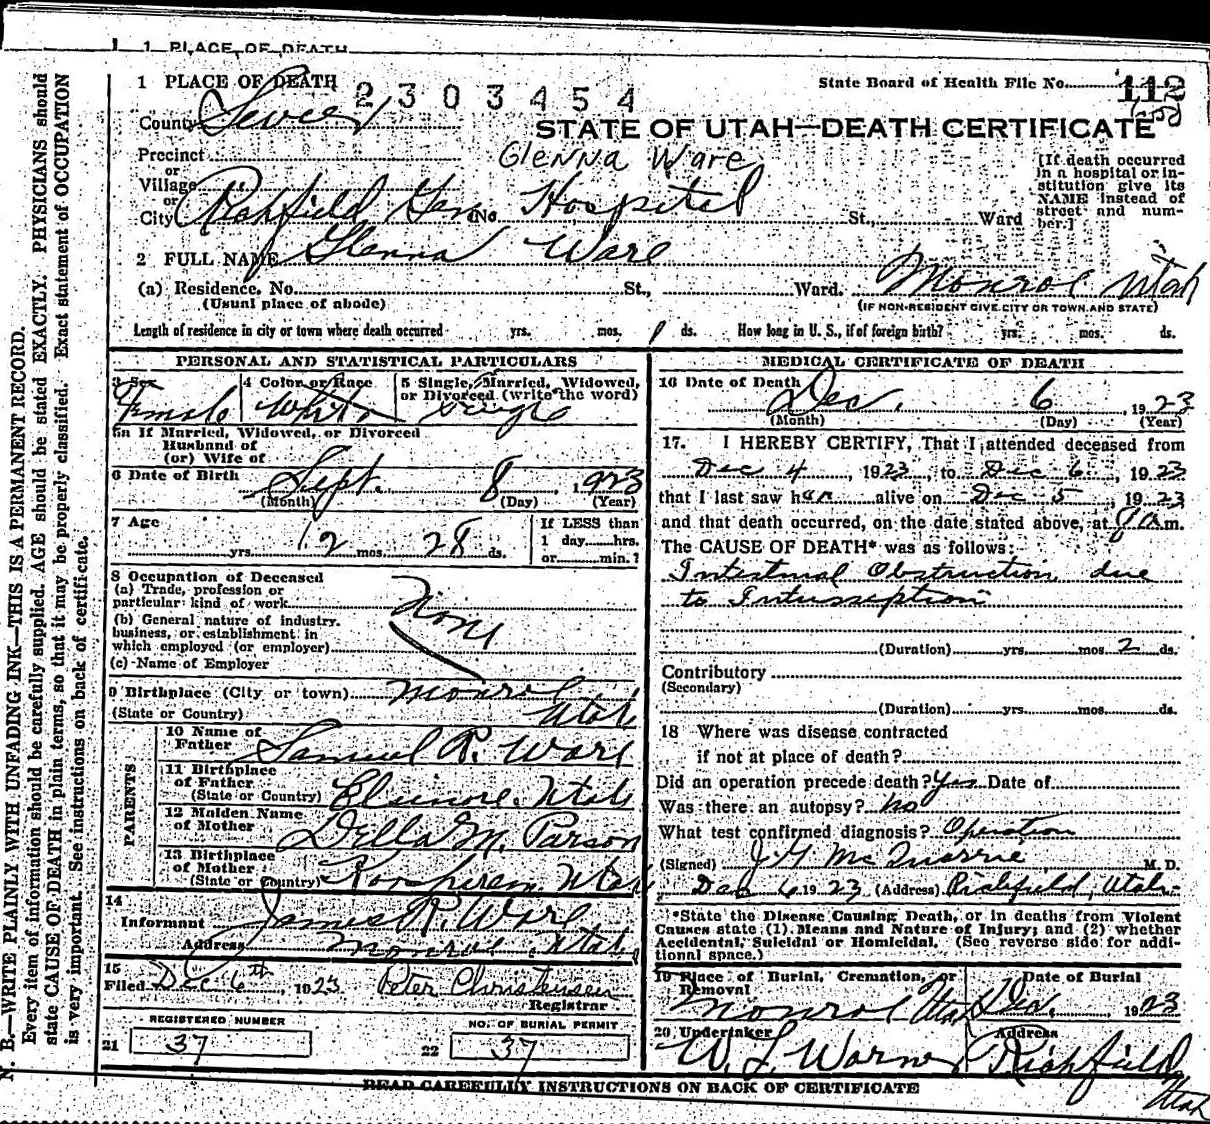 1 PLACE OF DEATH
1 PLACE OF DEATH
2303454
State Board of Health File No. 112
County Sevier
STATE OF UTAH—DEATH CERTIFICATE
Precinct
Glenna Ware
or
Village
or
City Richfield Gen No. Hospital St., Ward
[If death occurred in a hospital or institution give its NAME instead of street and number.]
2 FULL NAME Glenna Ware
(a) Residence. No. St., Ward. Monroe Utah
(Usual place of abode)
(IF NON-RESIDENT GIVE CITY OR TOWN AND STATE)
Length of residence in city or town where death occurred yrs. mos. 1 ds. How long in U. S., if of foreign birth? yrs. mos. ds.
PERSONAL AND STATISTICAL PARTICULARS
3 Sex
Female
4 Color or Race
White
5 Single, Married, Widowed,
or Divorced (write the word)
Single
5a If Married, Widowed, or Divorced
Husband of
(or) Wife of
6 Date of Birth Sept. 8, 1923
(Month) (Day) (Year)
7 Age
yrs. 2 mos. 28 ds.
If LESS than
1 day hrs.
or min.?
8 Occupation of Deceased
(a) Trade, profession or
particular kind of work
None
(b) General nature of industry,
business, or establishment in
which employed (or employer)
(c) Name of Employer
9 Birthplace (City or town) Monroe
(State or Country) Utah
PARENTS
10 Name of
Father Samuel R. Ware
11 Birthplace
of Father
(State or Country) Elsinore. Utah
12 Maiden Name
of Mother Della M. Parson
13 Birthplace
of Mother
(State or Country) Koosharem Utah
14
Informant James R. Ware
Address Monroe, Utah
15
Filed Dec 6th, 1923 Peter Christensen
Registrar
REGISTERED NUMBER
21 37
NO. OF BURIAL PERMIT
22 37
MEDICAL CERTIFICATE OF DEATH
16 Date of Death Dec. 6 1923
(Month) (Day) (Year)
17. I HEREBY CERTIFY, That I attended deceased from
Dec 4, 1923, to Dec 6, 1923
that I last saw her alive on Dec 5, 1923
and that death occurred, on the date stated above, at a m.
The CAUSE OF DEATH* was as follows:
Intestinal Obstruction due
to Intusseption
(Duration) yrs. mos. 2 ds.
Contributory
(Secondary)
(Duration) yrs. mos. ds.
18 Where was disease contracted
if not at place of death?
Did an operation precede death? Yes Date of
Was there an autopsy? No
What test confirmed diagnosis? Operation
(Signed) J. G. McQuarrie M. D.
Dec 6 1923 (Address) Richfield, Utah
*State the Disease Causing Death, or in deaths from Violent
Causes state (1) Means and Nature of Injury; and (2) whether
Accidental, Suicidal or Homicidal. (See reverse side for addi-
tional space.)
19 Place of Burial, Cremation, or
Removal
Monroe Utah
Date of Burial
Dec. 1923
20 Undertaker
Address
Richfield
Utah
READ CAREFULLY INSTRUCTIONS ON BACK OF CERTIFICATE
N. B.—WRITE PLAINLY WITH UNFADING INK—THIS IS A PERMANENT RECORD.
Every item of information should be carefully supplied. AGE should be stated EXACTLY. PHYSICIANS should
state CAUSE OF DEATH in plain terms, so that it may be properly classified. Exact statement of OCCUPATION
is very important. See instructions on back of certificate.